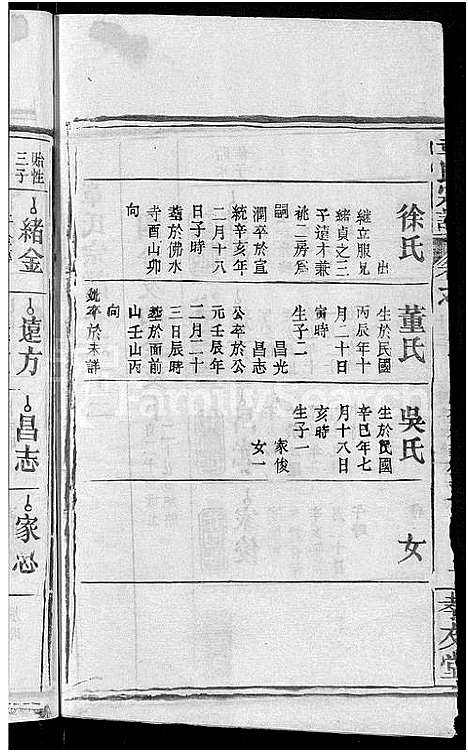 徐氏
出
继立服兄
緒貞之三
子遠才兼
祧二房為
嗣
潤卒於宣
統辛亥年
二月十八
日子時
塟於佛水
寺酉山卯
向
董氏
生於民國
丙辰年十
月二十日
寅時
生子二
昌光
昌志
公卒於公
元壬辰年
二月二十
三日辰時
塟於面前
山壬山丙
向
卒於未詳
吳氏
生於民國
辛巳年七
月十八日
亥時
生子一
家俊
女一
女
孝友堂
貽性
三子
緒金
遠方
昌志
家